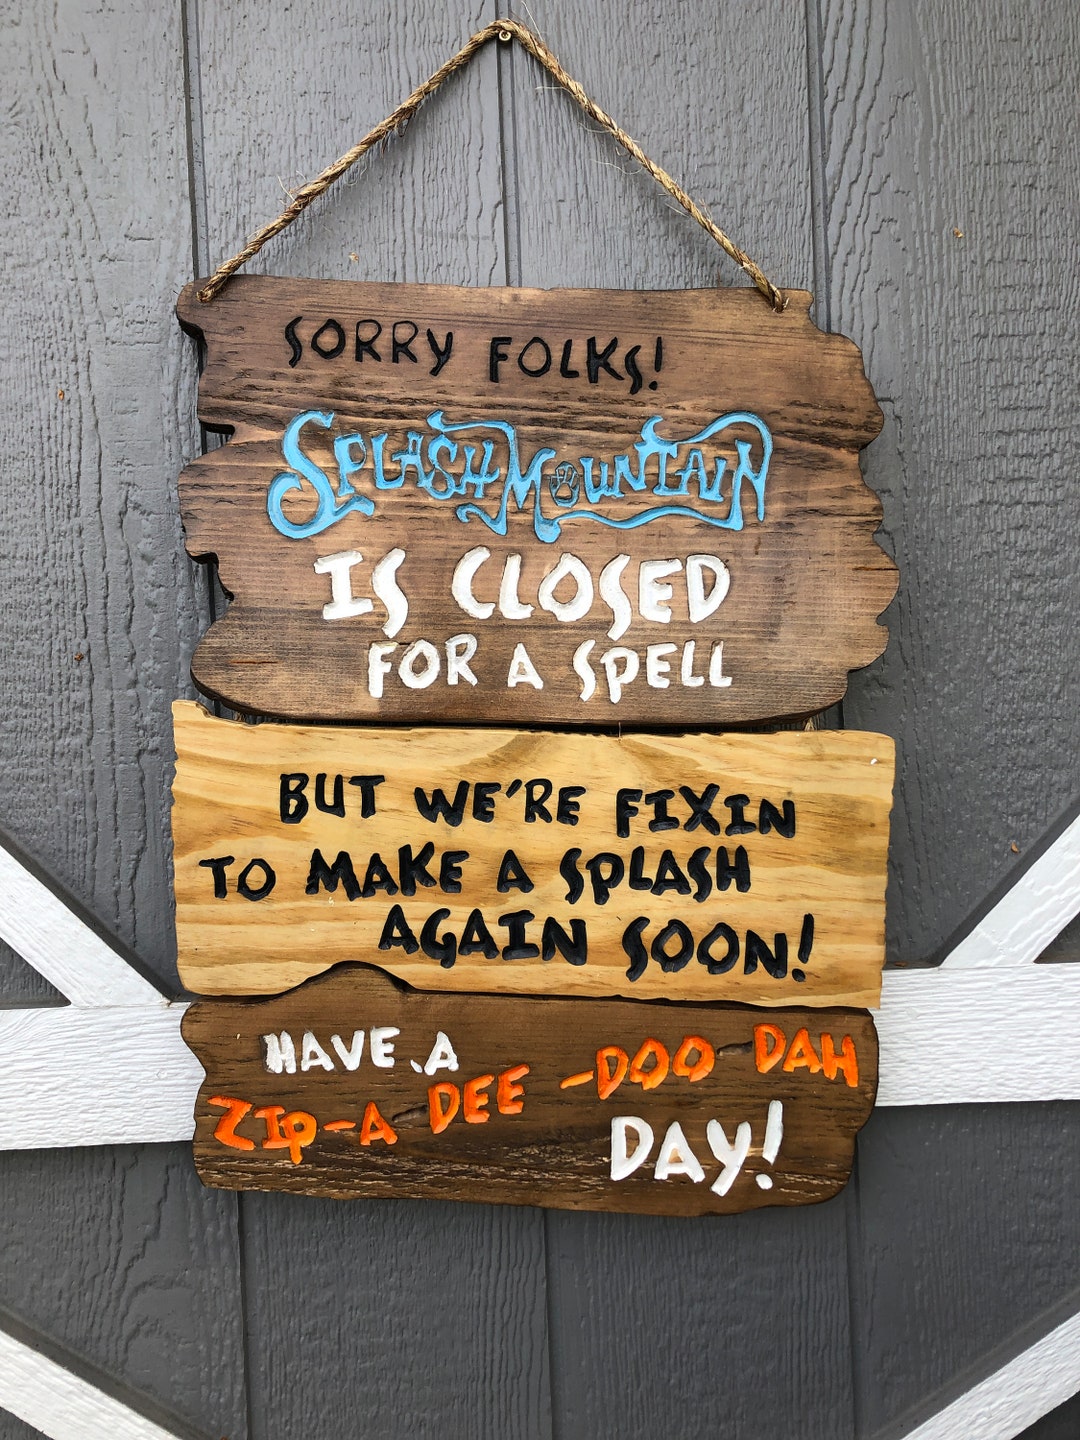 SORRY FOLKS!
SPLASH MOUNTAIN
IS CLOSED
FOR A SPELL
BUT WE'RE FIXIN
TO MAKE A SPLASH
AGAIN SOON!
HAVE A
ZIP-A-DEE-DOO-DAH
DAY!